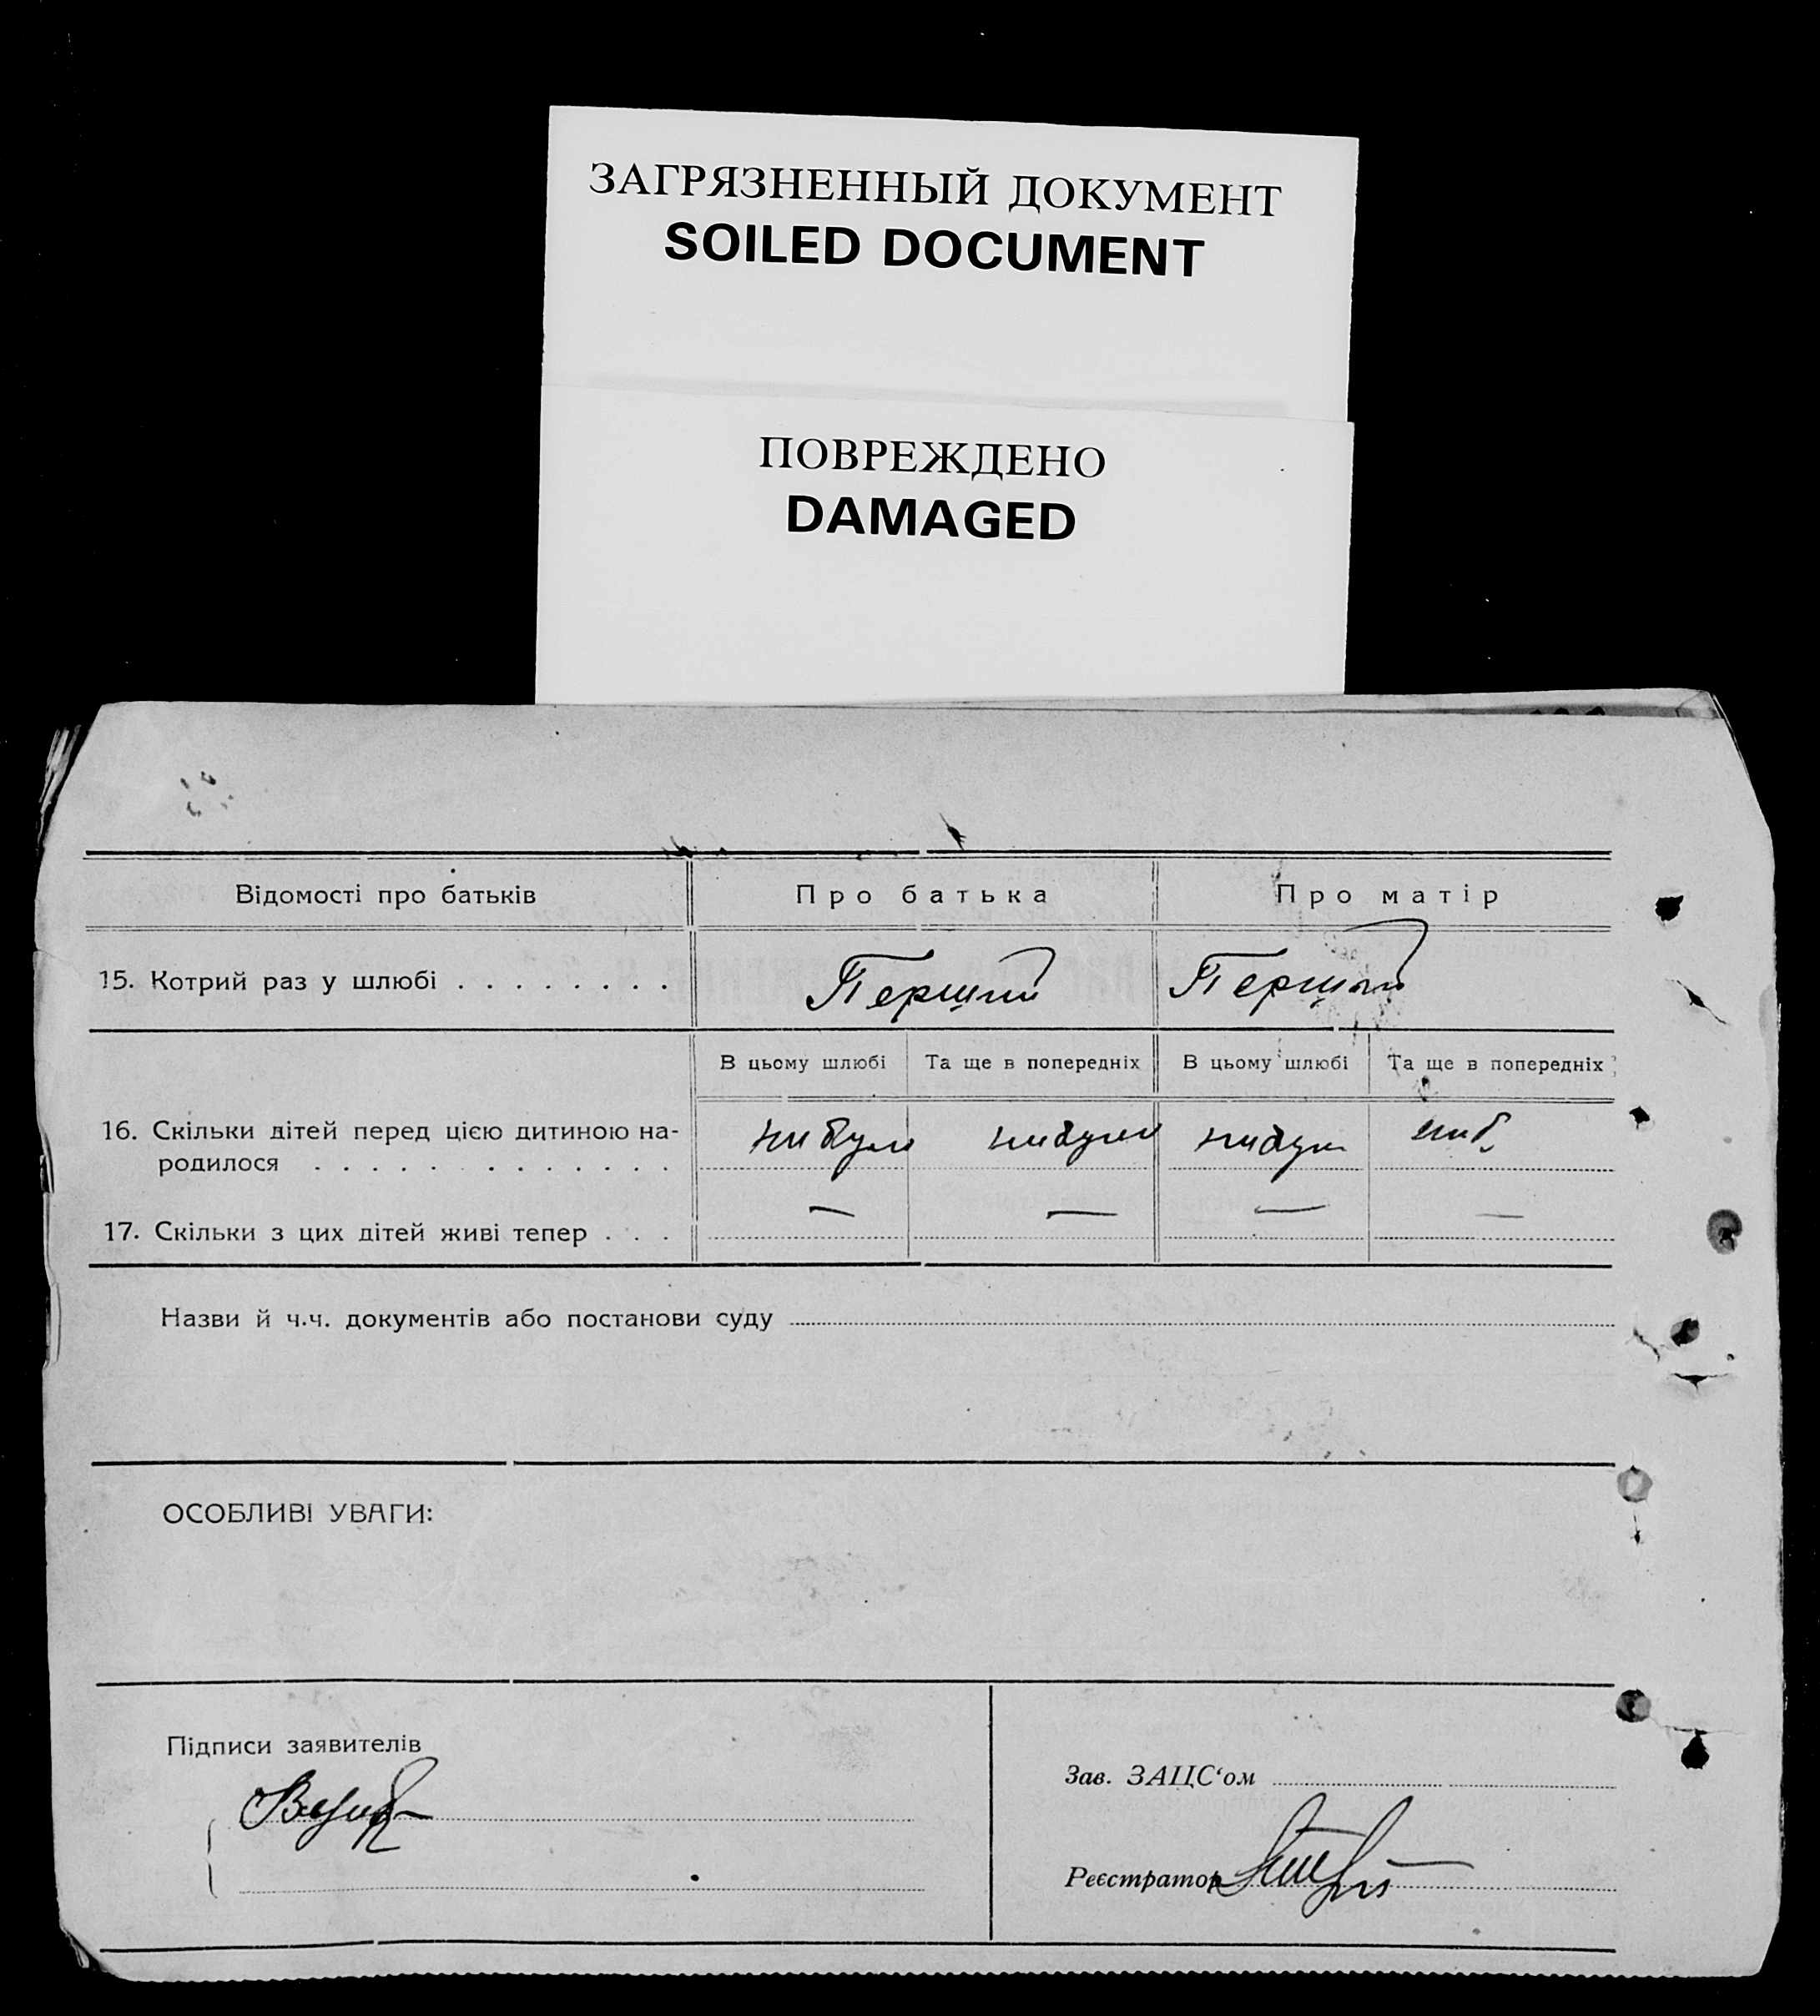 ЗАГРЯЗНЕННЫЙ ДОКУМЕНТ
SOILED DOCUMENT
ПОВРЕЖДЕНО
DAMAGED
Відомості про батьків Про батька Про матір
15. Котрий раз у шлюбі . . . . . . . . Перший Перший
В цьому шлюбі Та ще в попередніх В цьому шлюбі Та ще в попередніх
16. Скільки дітей перед цією дитиною на-
родилося . . . . . . . . . . . . . нибули нибули нибули
— — — —
17. Скільки з цих дітей живі тепер . . .
Назви й ч.ч. документів або постанови суду
ОСОБЛИВІ УВАГИ:
Підписи заявителів
Зав. ЗАЦС'ом
Реєстратор